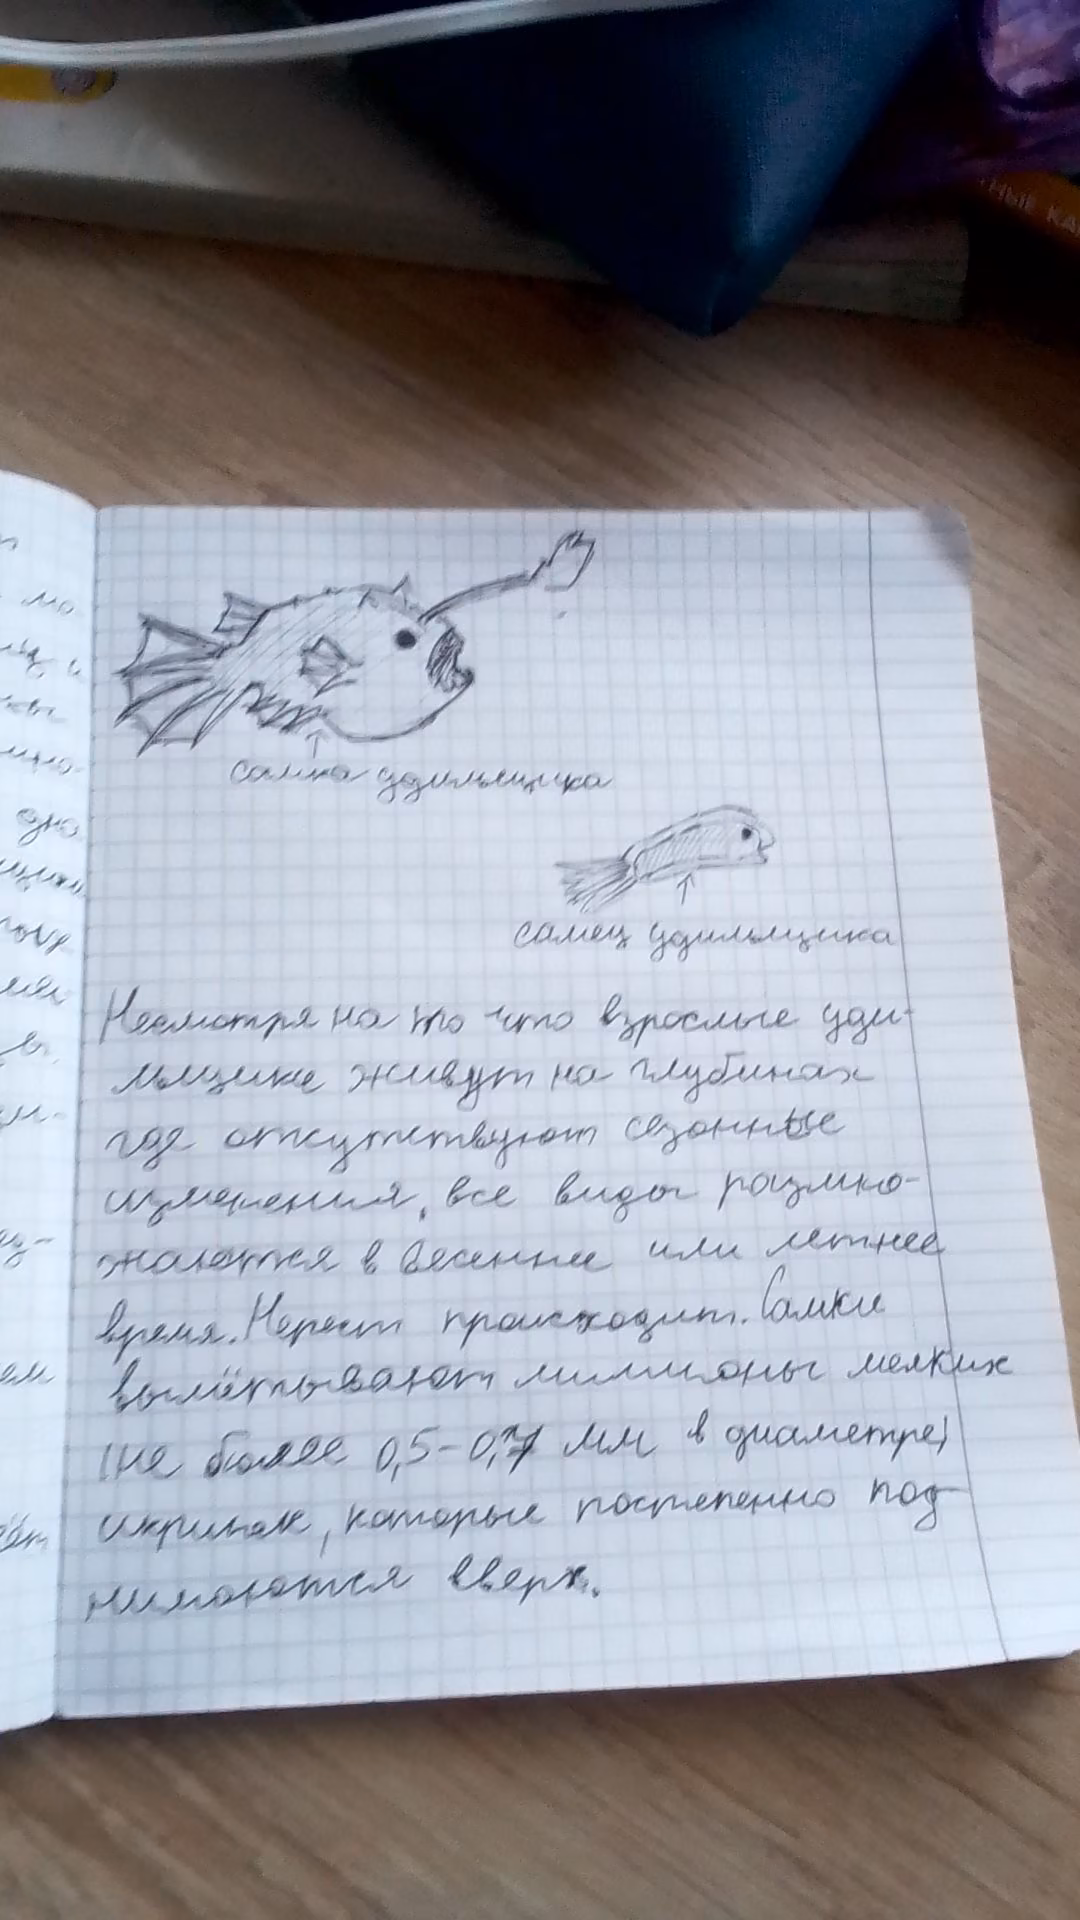 самка удильщика
самец удильщика
Несмотря на то что взрослые уди-
льщики живут на глубинах
где отсутствуют сезонные
изменения, все виды размно-
жаются в весеннее или летнее
время. Нерест происходит. Самки
вымётывают миллионы мелких
(не более 0,5-0,7 мм в диаметре)
икринок, которые постепенно под-
нимаются вверх.